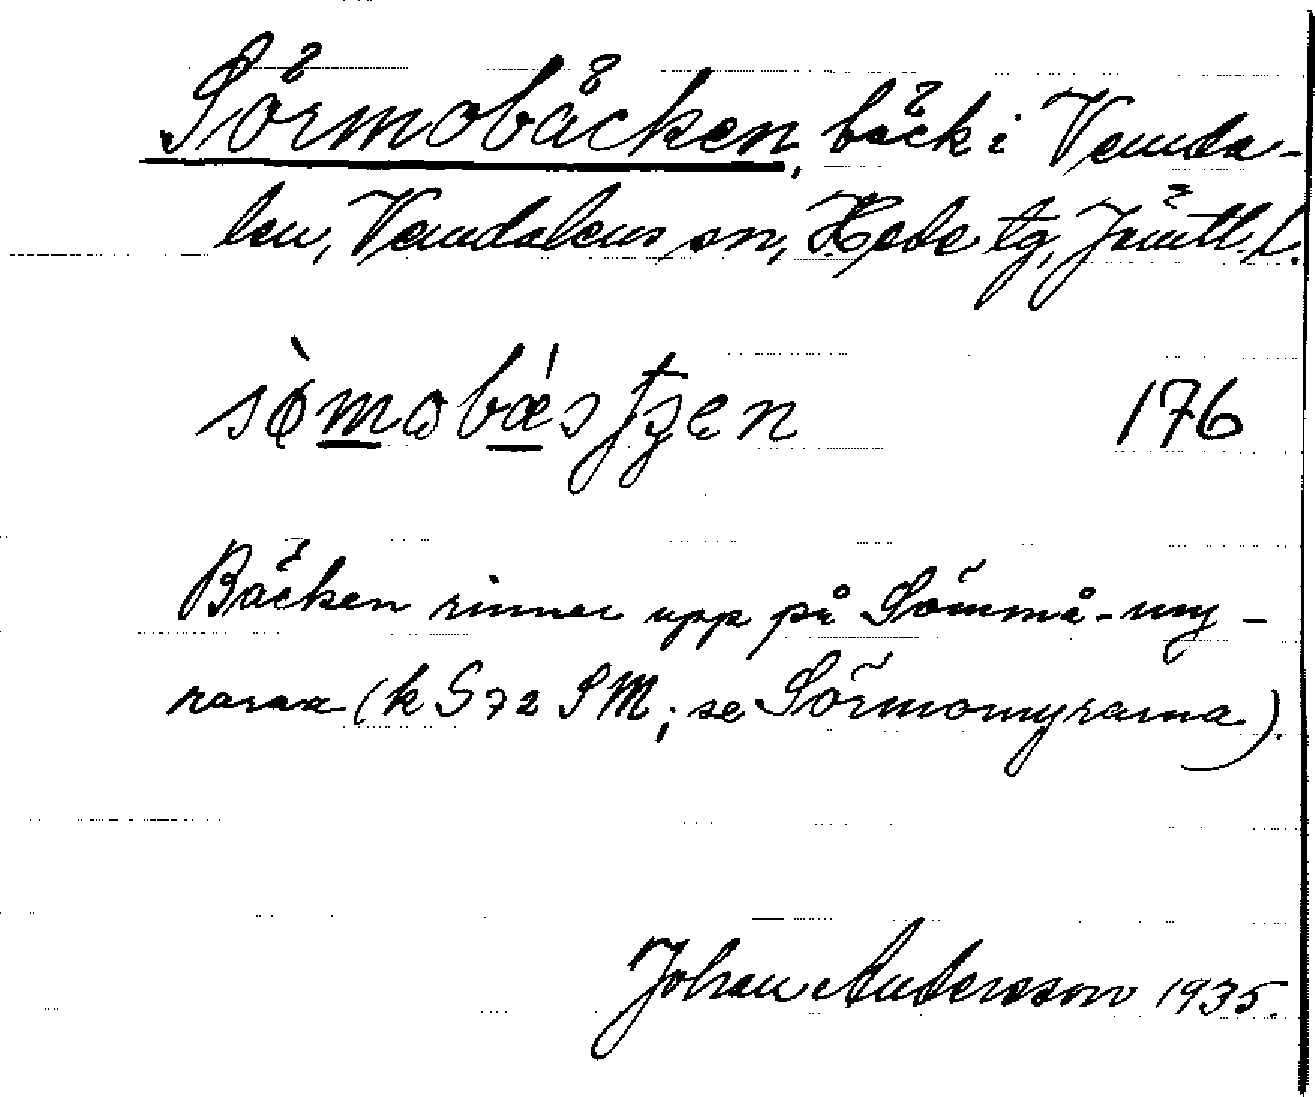 Sörmobäcken, bäck i Vemda-
len, Vemdalens sn, Hede tg, Jämtl. l.
176
Bäcken rinner upp på Sömmå-my-
rarna (k S 72 SM; se Sörmomyrarna).
Johan Andersson 1935.